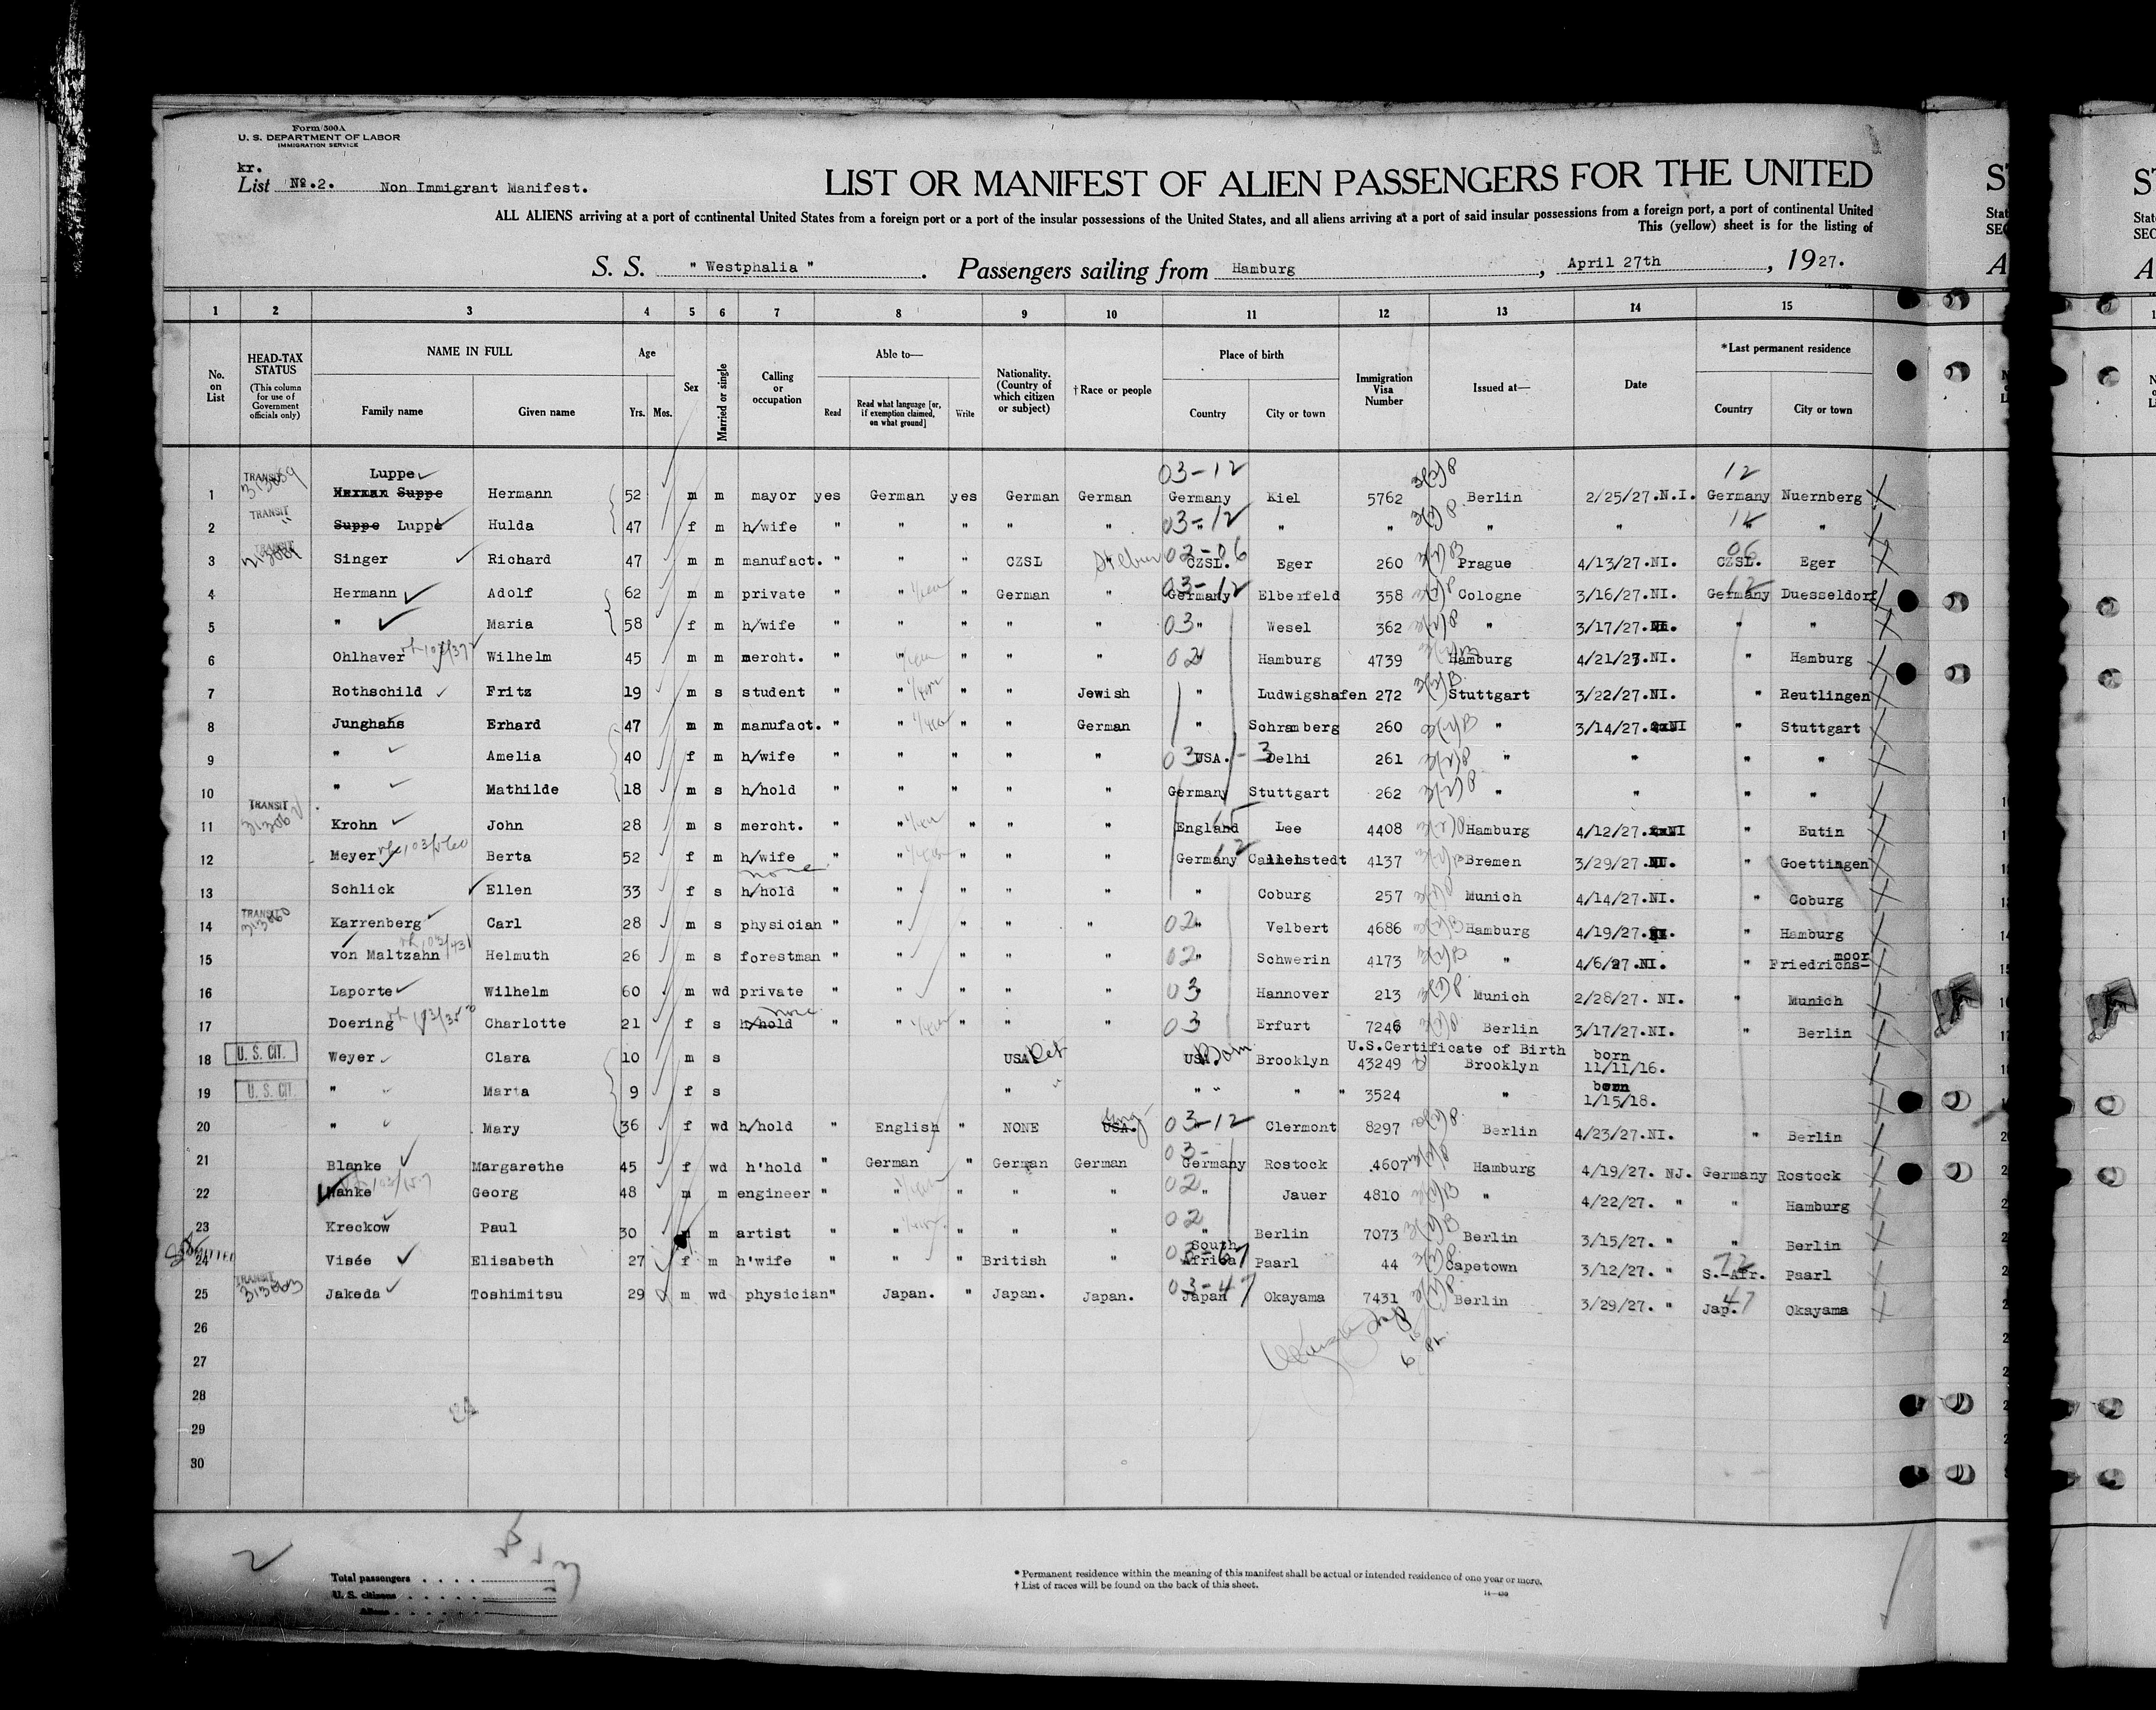 Form 500A
U. S. DEPARTMENT OF LABOR
IMMIGRATION SERVICE
kr.
List No.2. Non Immigrant Manifest.
LIST OR MANIFEST OF ALIEN PASSENGERS FOR THE UNITED
ALL ALIENS arriving at a port of continental United States from a foreign port or a port of the insular possessions of the United States, and all aliens arriving at a port of said insular possessions from a foreign port, a port of continental United
This (yellow) sheet is for the listing of
S. S. " Westphalia " . Passengers sailing from Hamburg , April 27th , 1927.
1 2 3 4 5 6 7 8 9 10 11 12 13 14 15
No. on List
HEAD-TAX STATUS (This column for use of Government officials only)
NAME IN FULL Family name Given name
Age Yrs. Mos.
Sex
Married or single
Calling or occupation
Able to— Read Read what language [or, if exemption claimed, on what ground] Write
Nationality. (Country of which citizen or subject)
† Race or people
Place of birth Country City or town
Immigration Visa Number
Issued at—
Date
*Last permanent residence Country City or town
Luppe 03-12 12
1 TRANSIT Herman Suppe Hermann 52 m m mayor yes German yes German German Germany Kiel 5762 Berlin 2/25/27.N.I. Germany Nuernberg
2 TRANSIT " Suppe Luppe Hulda 47 f m h/wife " " " " " 03-12 " " " " " 12 " "
3 TRANSIT Singer Richard 47 m m manufact. " " " CZSL " 02-06 CZSL. Eger 260 Prague 4/13/27.NI. 06 CZSL. Eger
4 Hermann Adolf 62 m m private " " " German " 03-12 Germany Elberfeld 358 Cologne 3/16/27.NI. 12 Germany Duesseldorf
5 " Maria 58 f m h/wife " " " " " 03 " Wesel 362 " 3/17/27.NI. " "
6 Ohlhaver Wilhelm 45 m m mercht. " " " " " 02 " Hamburg 4739 Hamburg 4/21/27.NI. " Hamburg
7 Rothschild Fritz 19 m s student " " " " Jewish " Ludwigshafen 272 Stuttgart 3/22/27.NI. " Reutlingen
8 Junghans Erhard 47 m m manufact. " " " " German " Schramberg 260 " 3/14/27. NI " Stuttgart
9 " Amelia 40 f m h/wife " " " " " 03 USA. - 3 Delhi 261 " " " "
10 " Mathilde 18 m s h/hold " " " " " Germany Stuttgart 262 " " " "
11 TRANSIT Krohn John 28 m s mercht. " " " " " England Lee 4408 Hamburg 4/12/27. NI " Eutin
12 Meyer Berta 52 f m h/wife " " " " " Germany 4137 Bremen 3/29/27.NI. " Goettingen
none
13 Schlick Ellen 33 f s h/hold " " " " " " Coburg 257 Munich 4/14/27.NI. " Coburg
14 TRANSIT Karrenberg Carl 28 m s physician " " " " " 02 " Velbert 4686 Hamburg 4/19/27. " Hamburg
15 von Maltzahn Helmuth 26 m s forestman " " " " " 02 " Schwerin 4173 " 4/6/27.NI. " Friedrichs-moor
16 Laporte Wilhelm 60 m wd private " " " " " 03 Hannover 213 Munich 2/28/27. NI. " Munich
none
17 Doering Charlotte 21 f s h/hold " " " " " 03 Erfurt 7246 Berlin 3/17/27.NI. " Berlin
U.S.Certificate of Birth born
18 U. S. CIT. Weyer Clara 10 m s USA USA. Born Brooklyn 43249 Brooklyn 11/11/16.
born
19 U. S. CIT. " Marta 9 f s " " " " 3524 " 1/15/18.
20 " Mary 36 f wd h/hold " English " NONE USA. 03-12 Clermont 8297 Berlin 4/23/27.NI. " Berlin
21 Blanke Margarethe 45 f wd h'hold " German " German German 03- Germany Rostock 4607 Hamburg 4/19/27. NJ. Germany Rostock
22 Hanke Georg 48 m m engineer " " " " " 02 " Jauer 4810 " 4/22/27. " " Hamburg
23 Kreckow Paul 30 m m artist " " " " " 02 " Berlin 7073 Berlin 3/15/27. " " Berlin
24 Visée Elisabeth 27 f m h'wife " " " British " South Africa Paarl 44 Capetown 3/12/27. " 72 S.-Afr. Paarl
25 TRANSIT Jakeda Toshimitsu 29 m wd physician " Japan. " Japan. Japan. 03-47 Japan Okayama 7431 Berlin 3/29/27. " 47 Jap. Okayama
26
27
28
29
30
2
Total passengers
U. S. citizens
Aliens
* Permanent residence within the meaning of this manifest shall be actual or intended residence of one year or more.
† List of races will be found on the back of this sheet.